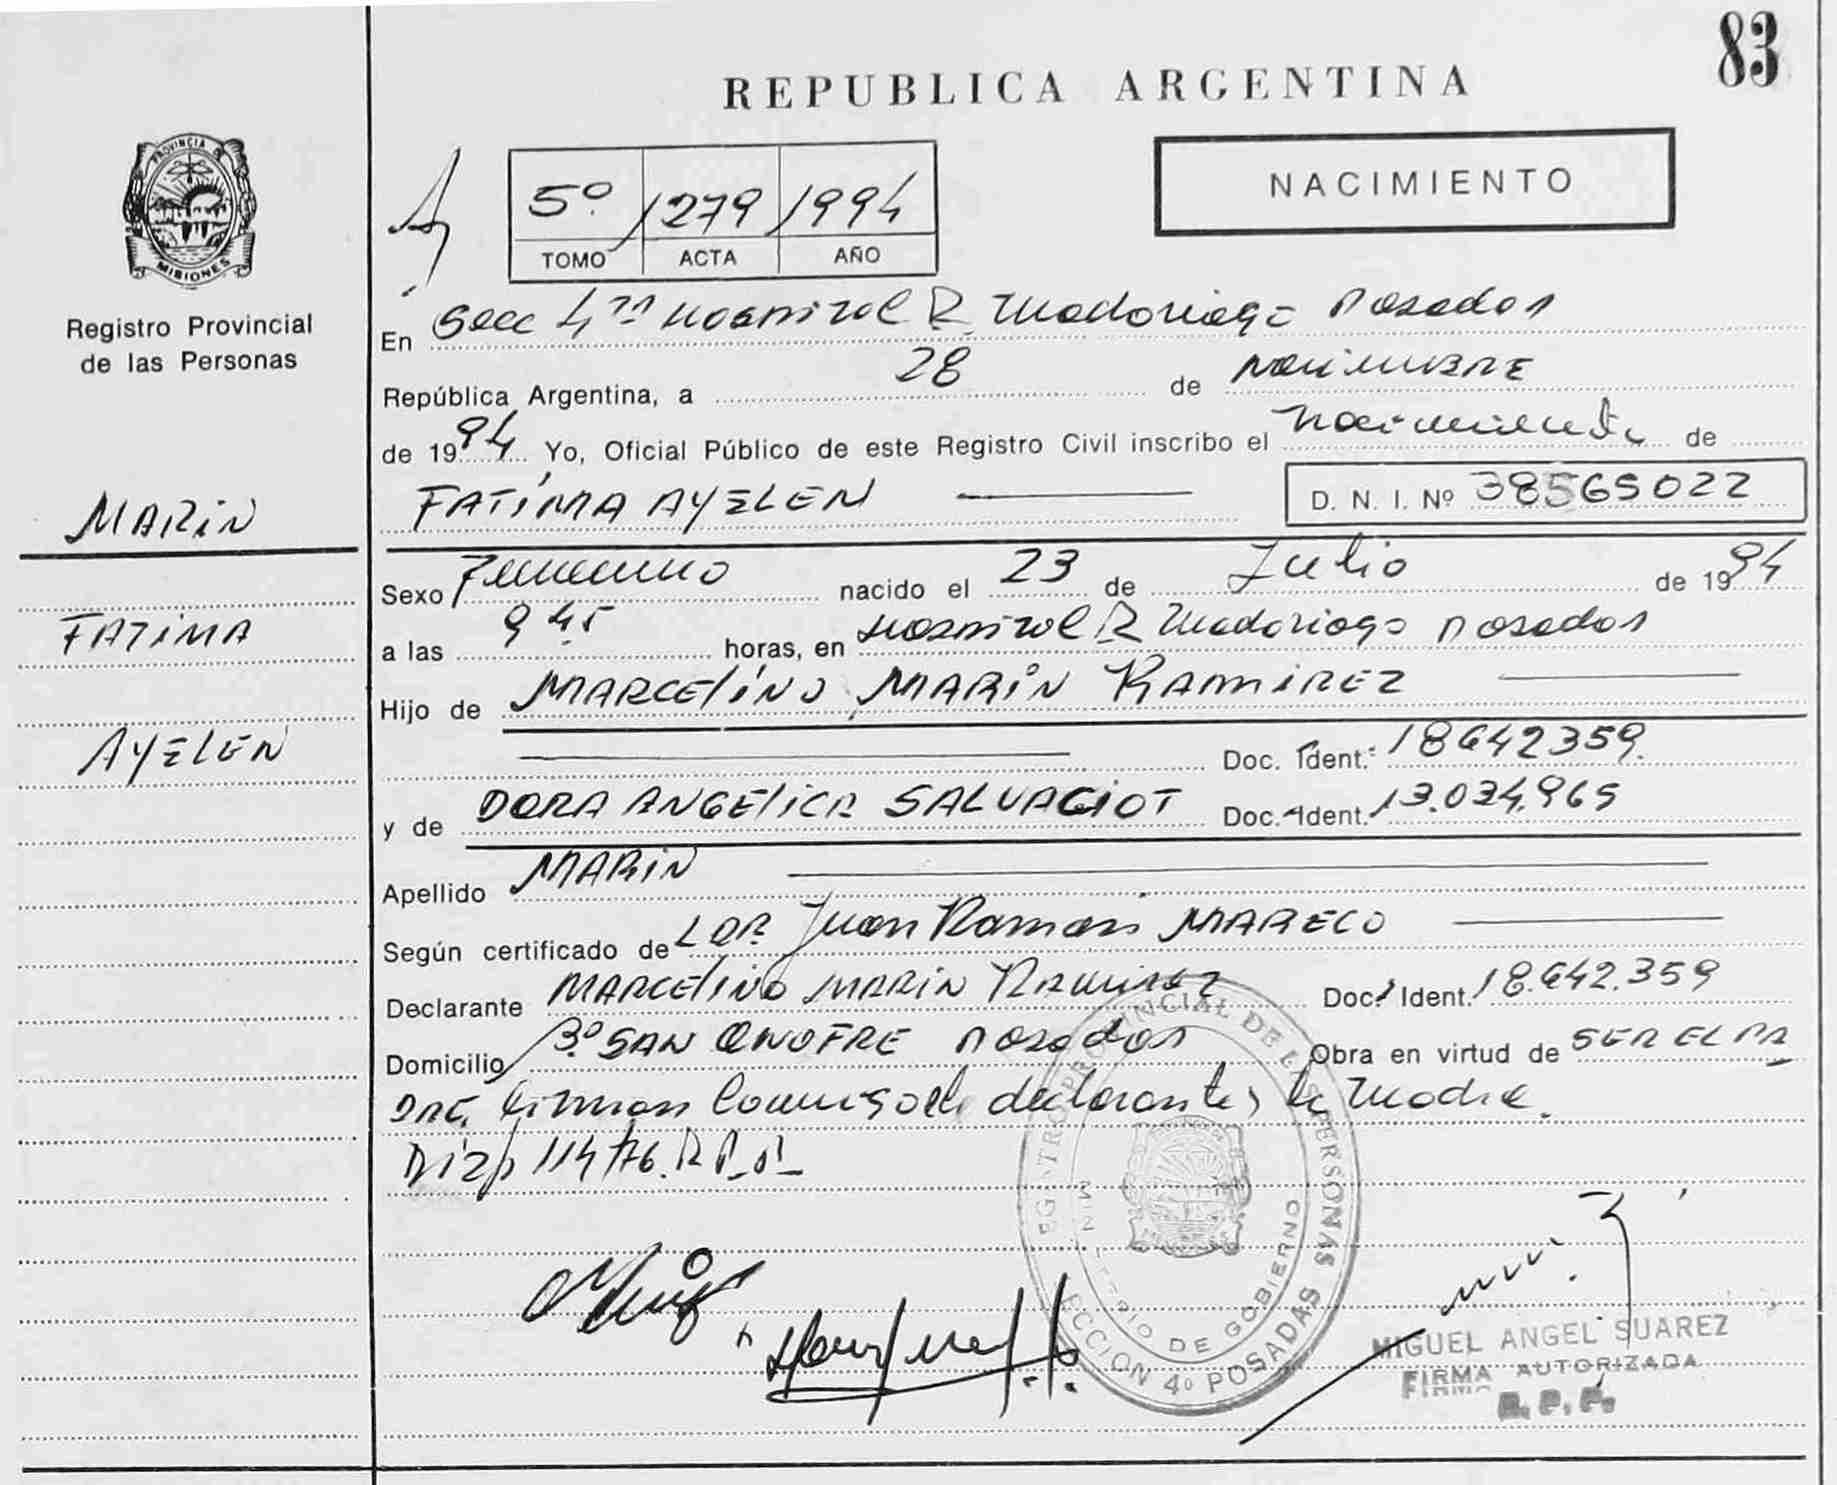 83
REPUBLICA ARGENTINA
NACIMIENTO
5º 1279 1994
TOMO ACTA AÑO
PROVINCIA DE
MISIONES
Registro Provincial
de las Personas
En Secc 4ta Hospital R. Madariaga Posadas
República Argentina, a 28 de Noviembre
de 1994 Yo, Oficial Público de este Registro Civil inscribo el nacimiento de
FATIMA AYELEN D. N. I. Nº 38565022
MARIN
FATIMA
AYELEN
Sexo Femenino nacido el 23 de Julio de 1994
a las 9 45 horas, en Hospital R Madariaga Posadas
Hijo de MARCELINO MARIN RAMIREZ
Doc. Ident. 18642359
y de DORA ANGELICA SALVAGIOT Doc. Ident. 13.034.965
Apellido MARIN
Según certificado de Juan Ramon MARECO
Declarante MARCELINO MARIN RAMIREZ Doc. Ident. 18.642.359
Domicilio Bº SAN ONOFRE Posadas Obra en virtud de SER EL PA
DRE. Firman conmigo el declarante y la Madre.
114/76. R.P.P.
REGISTRO PROVINCIAL DE LAS PERSONAS
MINISTERIO DE GOBIERNO
SECCION 4º POSADAS
MIGUEL ANGEL SUAREZ
FIRMA AUTORIZADA
R. P. P.